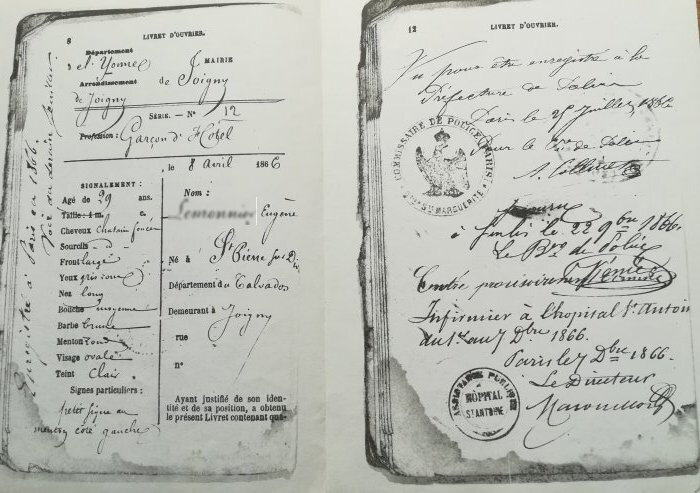 8 LIVRET D'OUVRIER.
Département
de l'Yonne
Arrondissement
de Joigny
MAIRIE
de Joigny
SÉRIE. — N° 12
Profession: Garçon d'Hôtel
le 8 Avril 1866
SIGNALEMENT:
Agé de 29 ans.
Taille 1 m. c.
Cheveux Chatain foncé
Sourcils d°
Front large
Yeux gris roux
Nez long
Bouche moyenne
Barbe brune
Menton rond
Visage ovale
Teint Clair
Signes particuliers:
petit signe au
menton côté gauche
Nom:
Lemonnier Eugène
Né à St Pierre sur Dives
Département du Calvados
Demeurant à Joigny
rue
n°
Ayant justifié de son iden-
tité et de sa position, a obtenu
le présent Livret contenant qua-
Enregistré à Paris en 1866.
Voir au dernier feuillet
12 LIVRET D'OUVRIER.
Vu pour être enregistré à la
Préfecture de Police
Paris le 25 Juillet 1866
Pour le de Police
COMMISSAIRE DE POLICE PARIS
STE MARGUERITE
à Senlis le 22 9bre 1866.
Le de Police
Entré provisoirement comme
Infirmier à l'hopital St Antoine
du 1er au 7 Dbre 1866.
Paris le 7 Dbre 1866.
Le Directeur
ASSISTANCE PUBLIQUE
HÔPITAL
ST ANTOINE